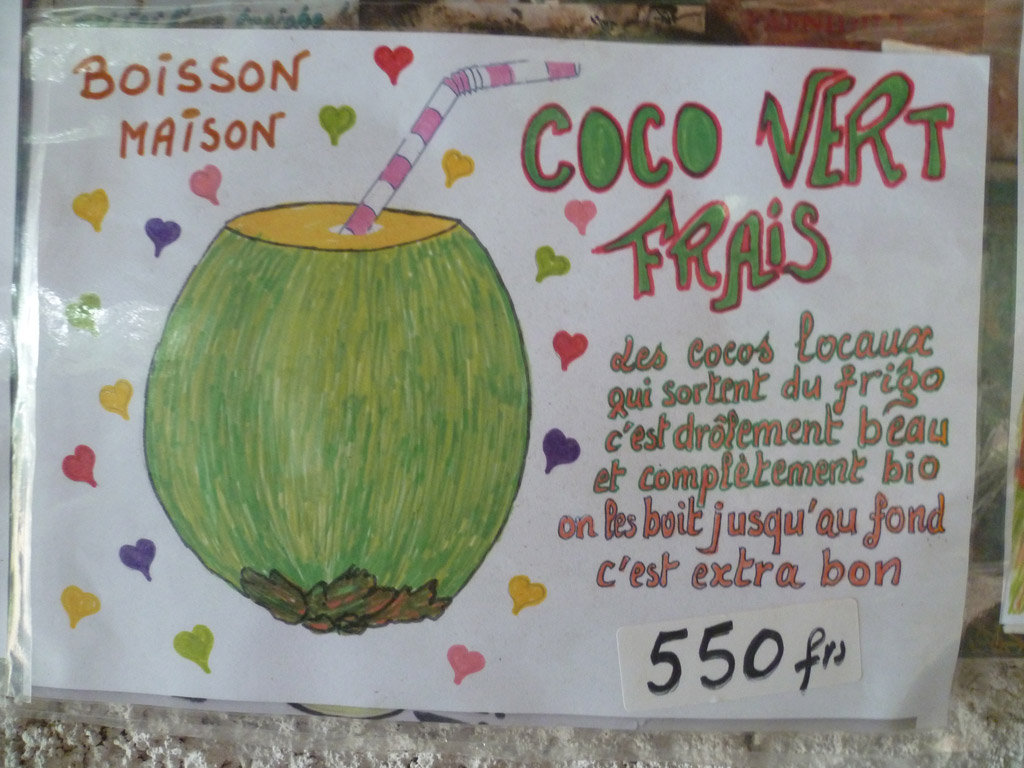 BOISSON
MAISON
COCO VERT
FRAIS
Les cocos locaux
qui sortent du frigo
c'est drôlement beau
et complètement bio
on les boit jusqu'au fond
c'est extra bon
550 frs